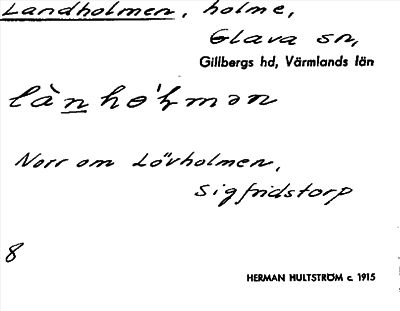 Landholmen, holme,
Glava sn,
Gillbergs hd, Värmlands län
Norr om Lövholmen,
Sigfridstorp
8
HERMAN HULTSTRÖM c. 1915